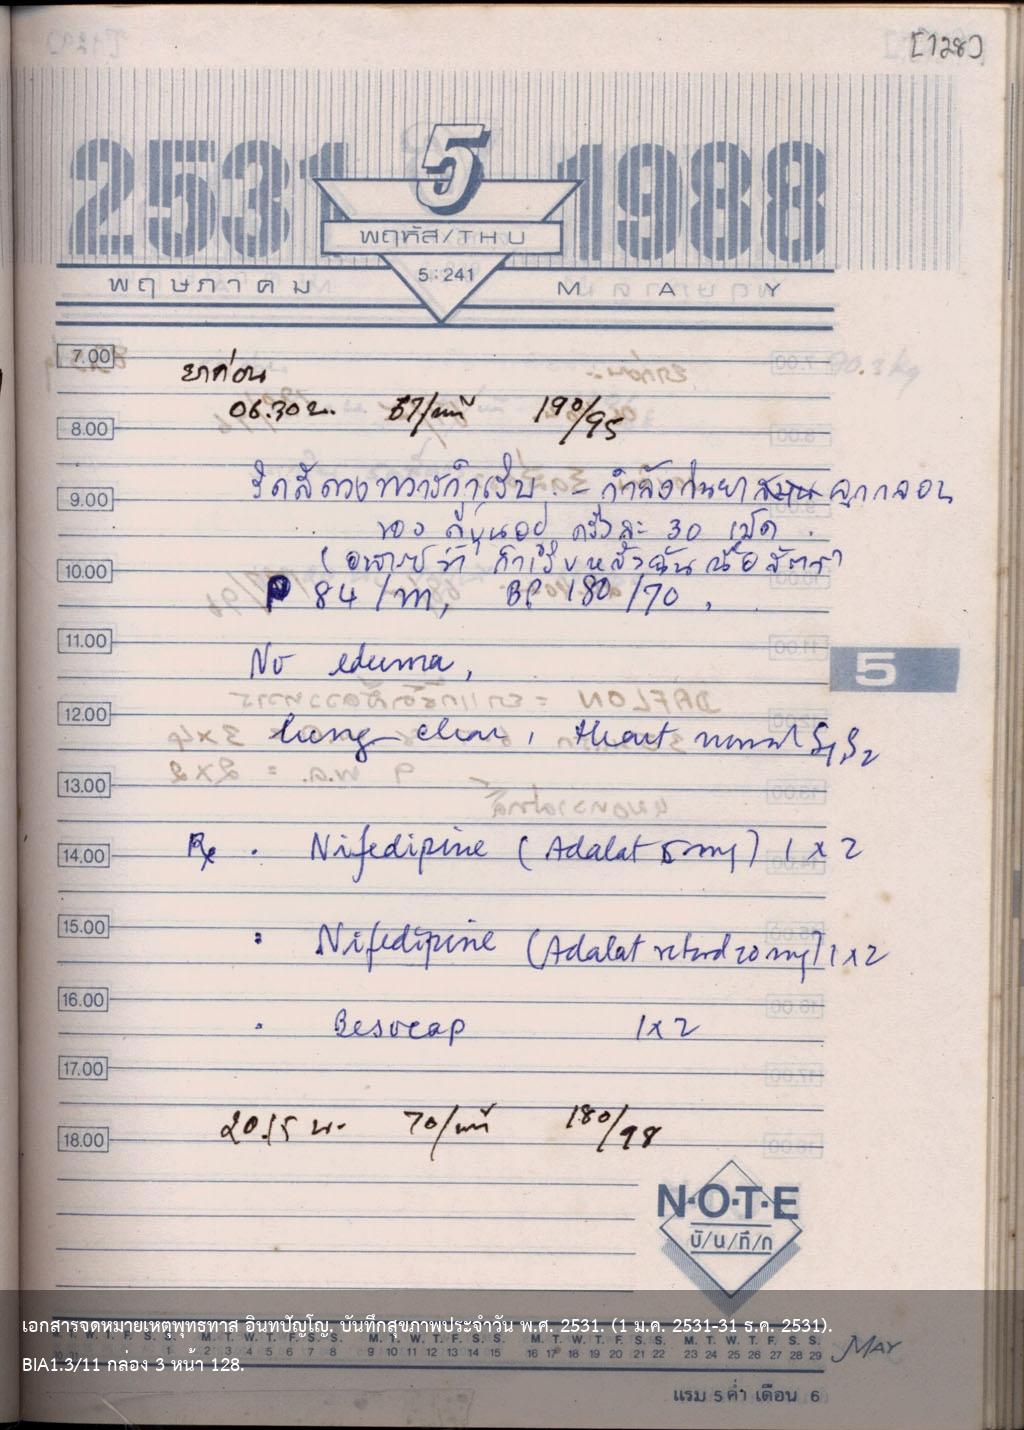 [128]
2531 5 1988
พฤหัส/THU
5:241
พฤษภาคม MAY
7.00
ยาก่อน
06.30 น. 67/นาที 190/95
8.00
ริดสีดวงทวารกำเริบ - กำลังกินยา ลูกกลอน
9.00
ของ ครั้งละ 30 เม็ด
(อาจารย์ว่า กำเริบหลังฉันเนื้อสัตว์)
10.00
P 84/m, BP 180/70,
11.00
No edema,
5
12.00
Lung clear, Heart normal S1S2
13.00
14.00
Rx . Nifedipine (Adalat 5 mg) 1 x 2
15.00
Nifedipine (Adalat retard 20 mg) 1 x 2
16.00
Besocap 1x2
17.00
20.15 น. 70/นาที 180/98
18.00
N·O·T·E
บั/น/ทึ/ก
เอกสารจดหมายเหตุพุทธทาส อินทปัญโญ. บันทึกสุขภาพประจำวัน พ.ศ. 2531. (1 ม.ค. 2531-31 ธ.ค. 2531).
M. T. W. T. F. S. S. M. T. W. T. F. S. S. M. T. W. T. F. S. S. M. T. W. T. F. S. S. M. T. W. T. F. S. S.
30 31 1 2 3 4 5 6 7 8 9 10 11 12 13 14 15 16 17 18 19 20 21 22 23 24 25 26 27 28 29 MAY
BIA1.3/11 กล่อง 3 หน้า 128.
แรม 5 ค่ำ เดือน 6